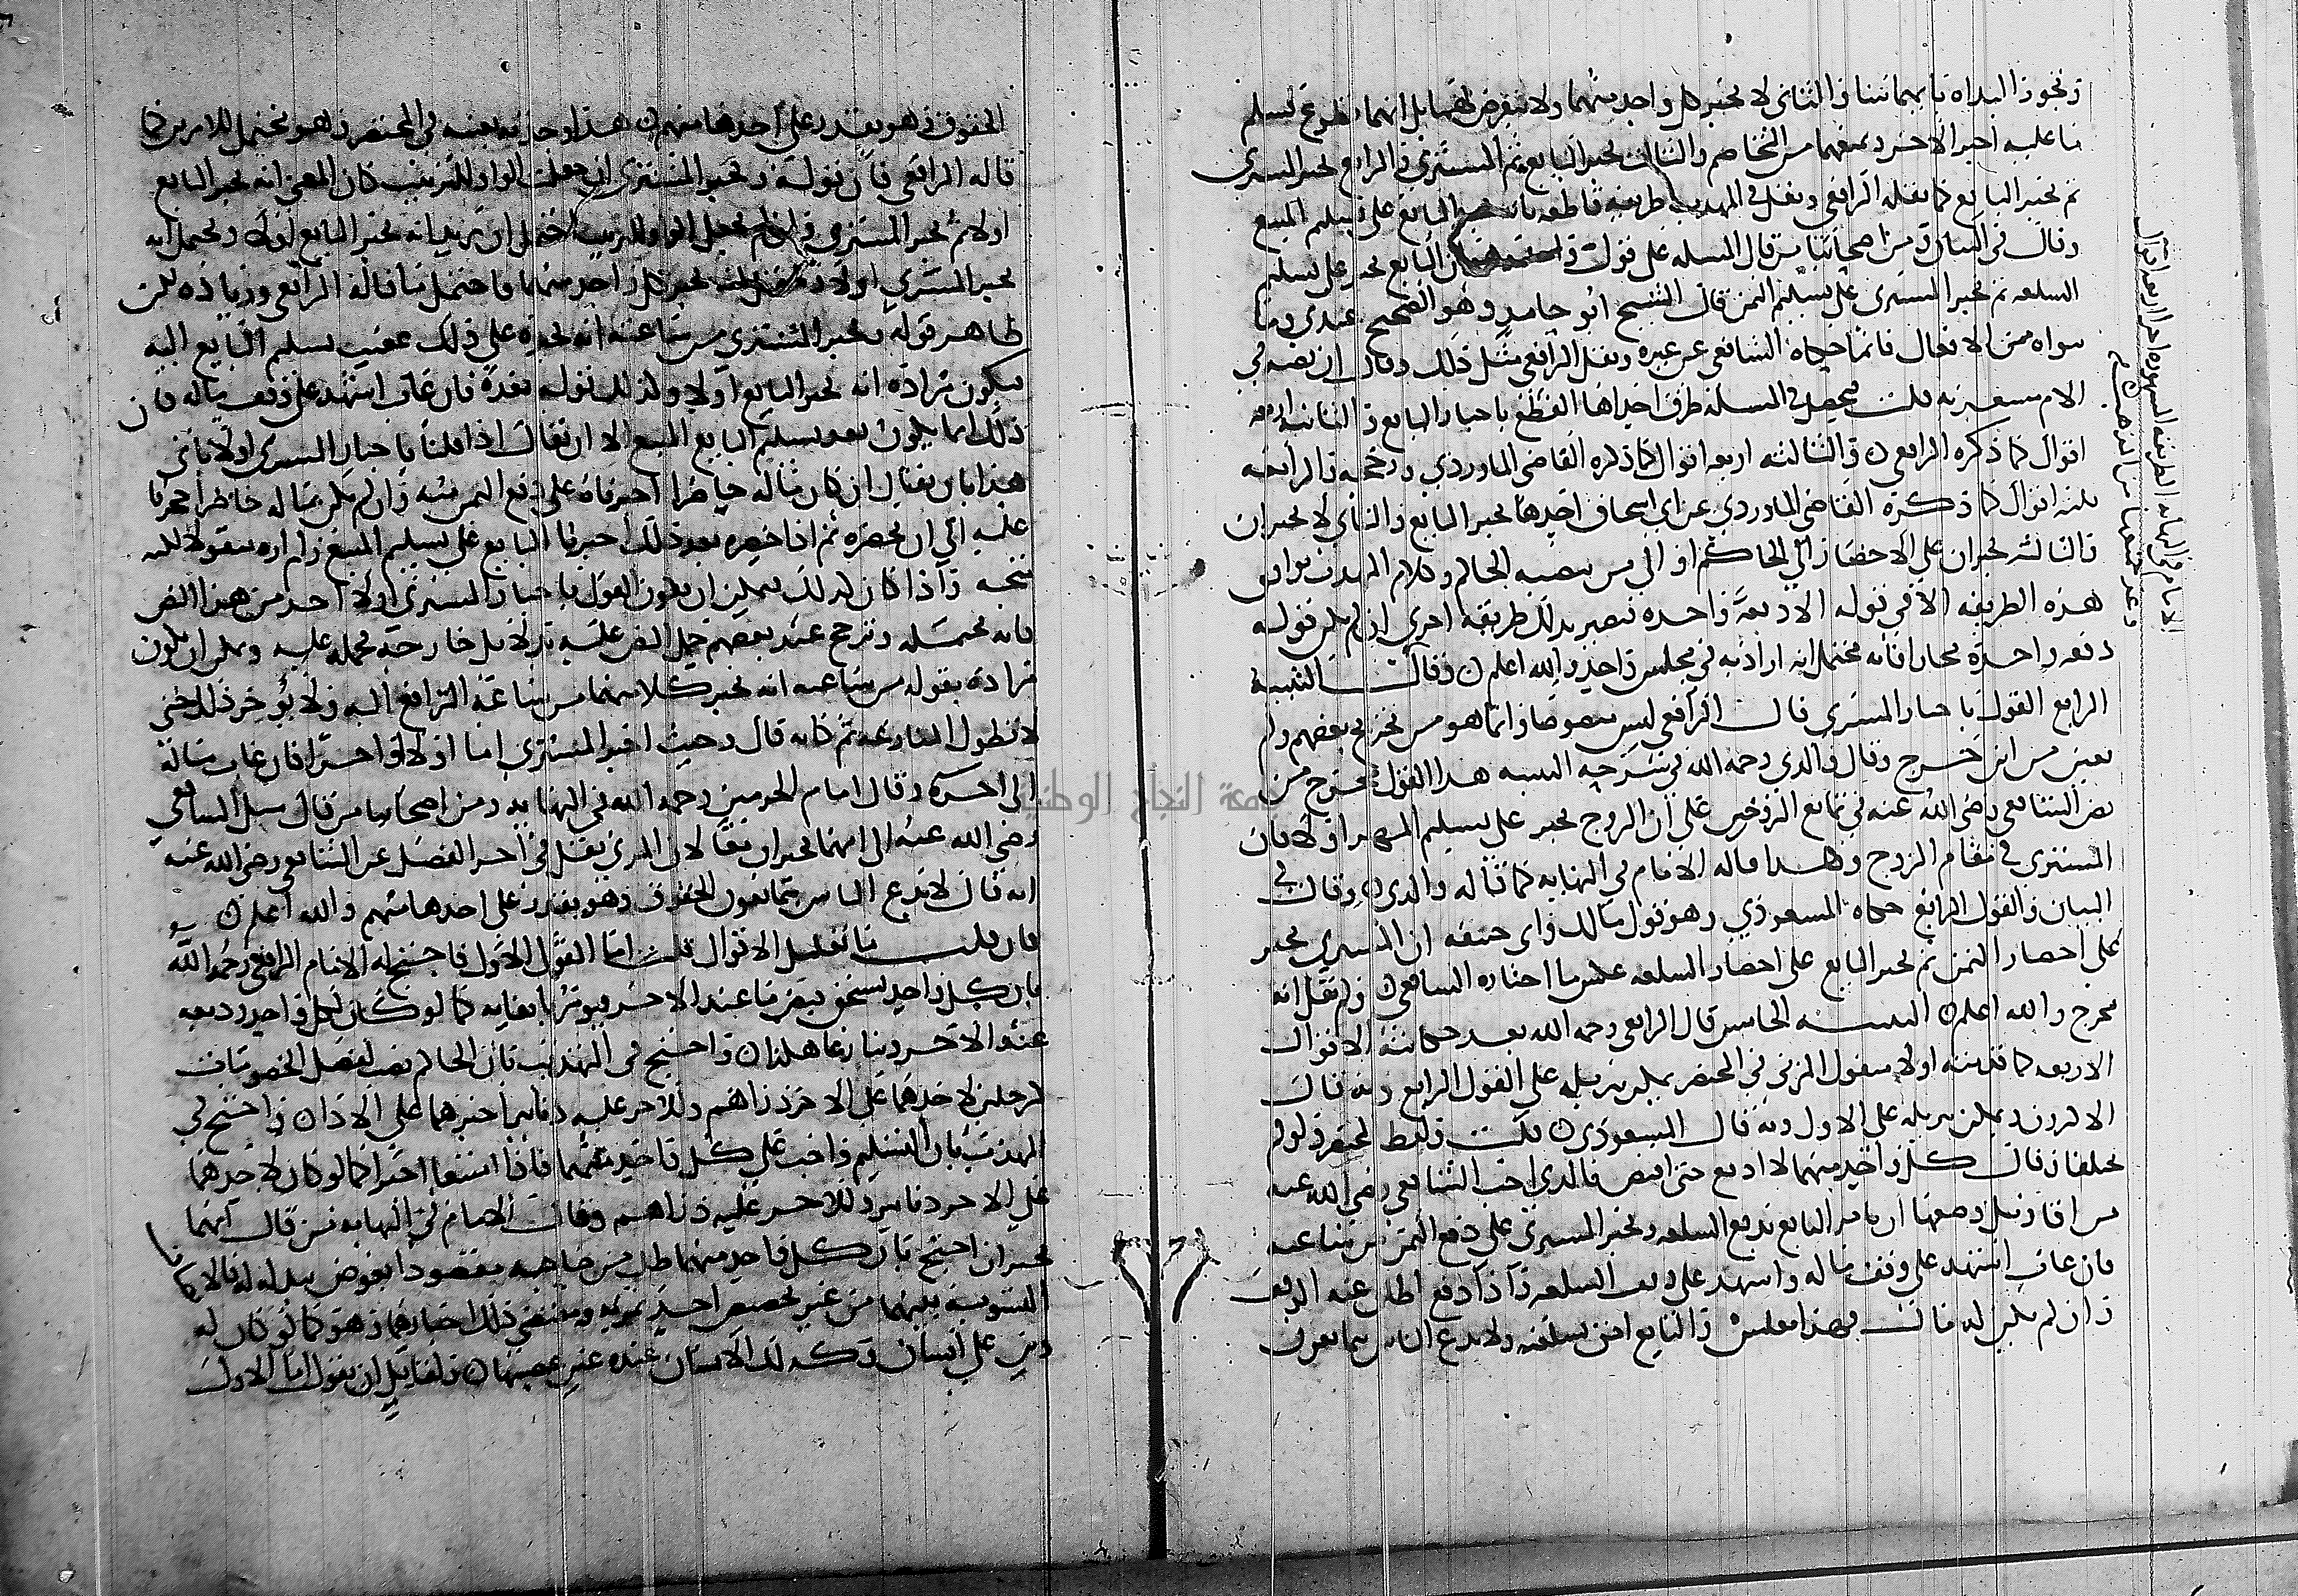 وتجوز البداه بايهما شا والثاني لا يجبر كل واحد منهما ولا يتعرض لهما بل ايهما تطوع بتسليم
ما عليه اجبر الاخر ويمنعهما من التخاصم والثالث يجبر البايع ثم المشتري والرابع يجبر المشتري
ثم يجبر البايع كما نقله الرافعي ونقل في المهذب طريقة قاطعه بانه يجبر البايع على تسليم المبيع
وقال في البيان ومن اصحابنا من قال المسله على قول واحد ان البايع يجبر على تسليم
السلعه ثم يجبر المشتري على تسليم الثمن قال الشيخ ابو حامد وهو الصحيح عندي وما
سواه من الاقوال فانما حكاه الشافعي عن غيره ونقل الرافعي مثل ذلك وقال ان نصه في
الام قلت فيحصل في المسله طرق احداها القطع باجبار البايع والثانيه اربعه
اقوال كما ذكره الرافعي والثالثه اربعه اقوال كما ذكره القاضي الماوردي والرابعه
ثلثه اقوال كما ذكره القاضي الماوردي عن ابي اسحاق احدها يجبر البايع والثاني لا يجبران
والثالث يجبران على الاحضار الى الحاكم او الى من ينصبه الحاكم وكلام المهذب يوافق
هذه الطريقه الا في قوله الا دفعة واحده فتصير بذلك طريقه اخرى ان لم يكن قوله
دفعه واحده مجازا فانه يحتمل انه اراد به في مجلس واحد والله اعلم وقال التنبيه
الرابع القول باجبار المشتري قال الرافعي ليس منصوصا وانما هو من تخريج بعضهم ولم
يعين من اين خرج وقال والدي رحمه الله في شرحه التنبيه هذا القول مخرج من
نص الشافعي رضي الله عنه في تمانع الزوجين على ان الزوج يجبر على تسليم المهر اولا فان
المشتري في مقام الزوج وهذا قاله الامام في النهايه كما قاله والدي وقال في
البيان والقول الرابع حكاه المسعودي وهو قول مالك وابي حنيفه ان المشتري يجبر
على احضار الثمن ثم يجبر البايع على احضار السلعه عكس ما اختاره الشافعي ولم نقل انه
مخرج والله اعلم التنبيه الخامس قال الرافعي رحمه الله بعد حكايته الاقوال
الاربعه كما قدمته اولا منقول المزني في المختصر يمكن تنزيله على القول الرابع وبه قال
الاكثرون ويمكن تنزيله على الاول وبه قال المسعودي قلت ولفظ المختصر ولو لم
يختلفا وقال كل واحد منهما لا ادفع حتى اقبض فالذي احب الشافعي رضي الله عنه
من اقاويل وصفها ان يامر البايع بدفع السلعه ويجبر المشتري على دفع الثمن من ساعته
فان غاب اشهد على وقف ماله واشهد على وقف السلعه فاذا دفع اطلق عنه الوقف
وان لم يكن له مال فهذا مفلس والبايع احق بسلعته ولا يدع الناس يتمانعون
الامام في النهايه الطريقه المشهوره اجرا اربعه اقوال
الحقوق وهو يقدر على احدها منهم هذا وجدته بعينه في المختصر وهو يحتمل للامرين كما
قاله الرافعي فان قوله ويجبر المشتري ان جعلت الواو للترتيب كان المعنى انه يجبر البايع
اولا ثم يجبر المشتري وان لم تجعل الواو للترتيب احتمل ان يريد انه يجبر البايع اولا ويحتمل انه
يجبر المشتري اولا ويحتمل انه يجبر كل واحد منهما فاحتمل ما قاله الرافعي وزياده لكن
ظاهر قوله ويجبر المشتري من ساعته انه يجبره على ذلك عقيب تسليم البايع اليه
فيكون مراده انه يجبر البايع اولا وكذلك قوله بعده فان غاب اشهد على وقف ماله فان
ذلك انما يكون بعد تسليم البايع المبيع الا ان يقال اذا قلنا باجبار المشتري اولا ياتي
هذا بان يقال ان كان ماله حاضرا اجبرناه على دفع الثمن منه وان لم يكن ماله حاضرا حجرنا
عليه الى ان يحضره ثم اذا حضره بعد ذلك اجبرنا البايع على تسليم المبيع ولم اره منقولا لكنه
متجه واذا كان كذلك فيمكن ان يكون القول باجبار المشتري اولا اخذ من هذا النص
فانه محتمله وترجح عند بعضهم حمل النص عليه بدلايل خارجه فحمله عليه ويمكن ان يكون
مراده بقوله من ساعته انه يجبر كلا منهما من ساعة الترافع اليه ولا يؤخر ذلك حتى
لا تطول المنازعه ثم كانه قال وحيث اجبر المشتري اما اولا او اخرا فان غاب ماله
الى اخره وقال امام الحرمين رحمه الله في النهايه ومن اصحابنا من قال ميل الشافعي
رضي الله عنه الى انهما يجبران معا لان المزني نقل في اخر الفصل عن الشافعي رضي الله عنه
انه قال لا ندع الناس يتمانعون الحقوق وهو يقدر على اخذها منهم والله اعلم
فان قلت ما تعليل الاقوال قلت اما القول الاول فاحتج له الامام الرافعي رحمه الله
بان كل واحد يستحق قبض ما عند الاخر فيومر بايفايه كما لو كان لكل واحد وديعه
عند الاخر وتنازعا هكذا واحتج في المهذب بان الحاكم نصب لفصل الخصومات
كرجلين لاحدهما على الاخر دراهم وللاخر عليه دنانير اجبرهما على الاداء واحتج في
المهذب بان التسليم واجب على كل واحد منهما فاذا امتنعا اجبرا كما لو كان لاحدهما
على الاخر دنانير وللاخر عليه دراهم وقال الامام في النهايه من قال انهما
يجبران احتج بان كل واحد منهما طلب من صاحبه مقصودا بعوض يبذله له فالامكان
التسويه بينهما من غير تخصيص احد بمزيه ومقتضى ذلك اجبارهما وهو كما لو كان له
دين على انسان وكذلك الانسان عنده عين غصبها ولقايل ان يقول اما الاول